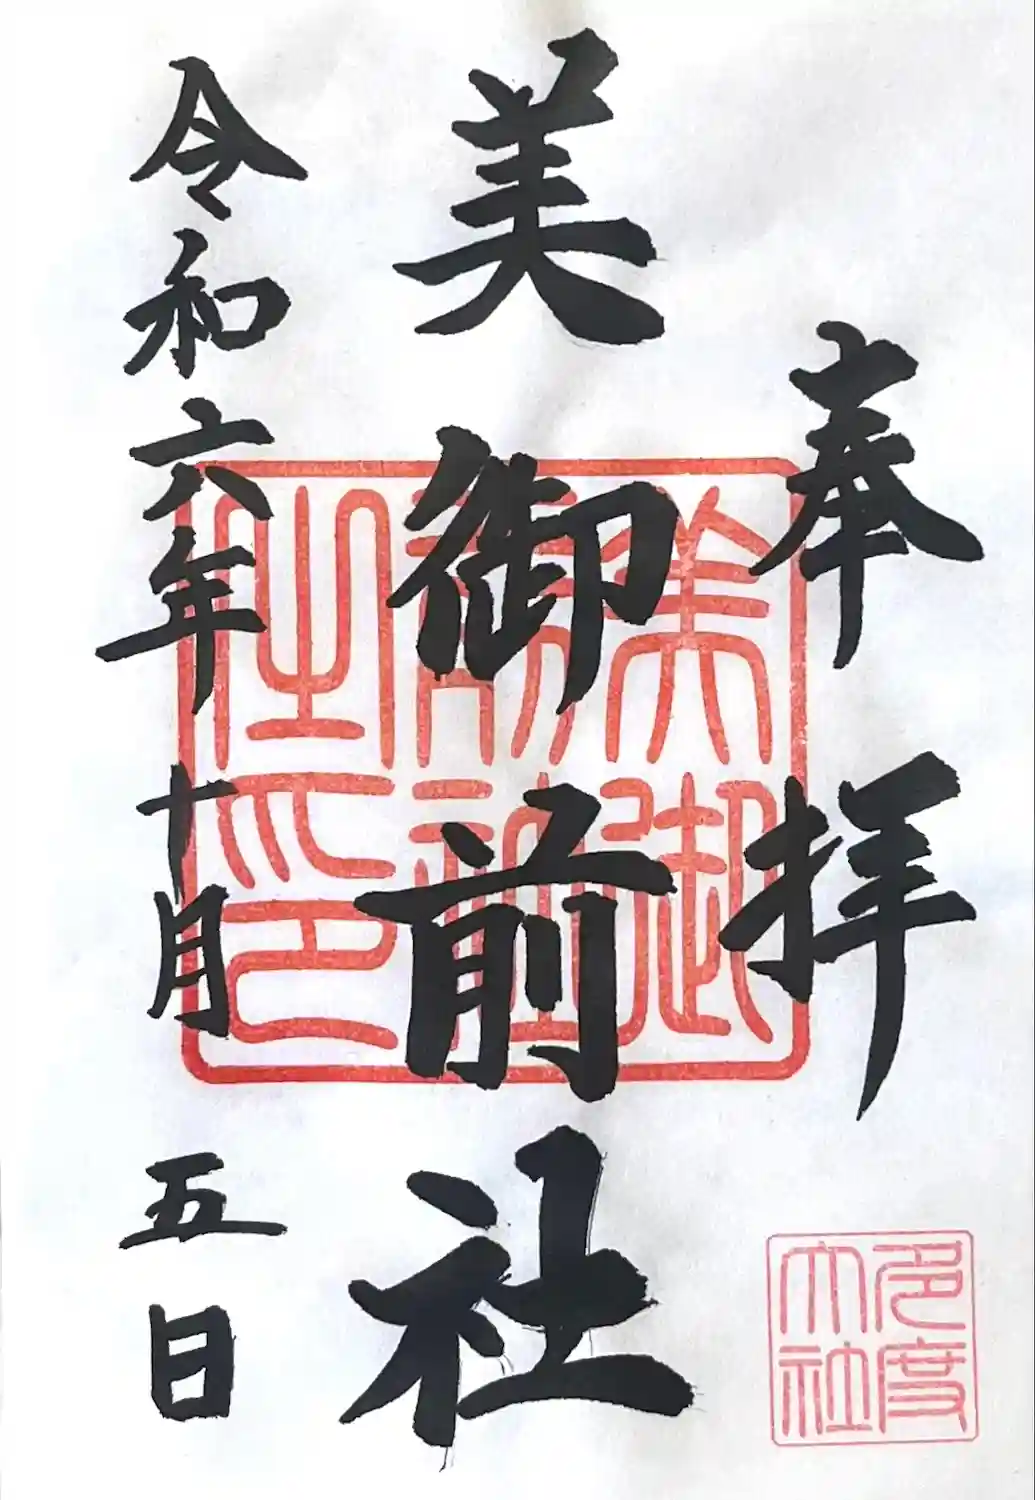 奉拝
美御前社
令和六年十月五日
美御前社之印
多度大社